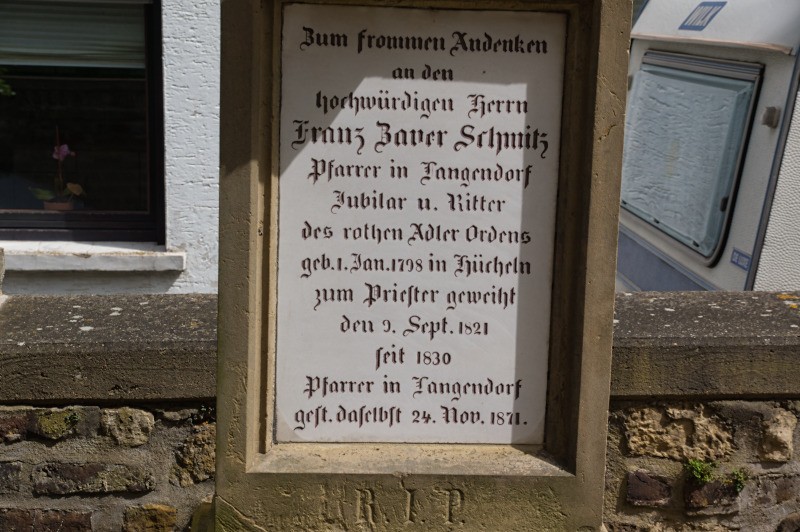 Zum frommen Andenken
an den
hochwürdigen Herrn
Franz Xaver Schmitz
Pfarrer in Langendorf
Jubilar u. Ritter
des rothen Adler Ordens
geb. 1. Jan. 1798 in Hücheln
zum Priester geweiht
den 9. Sept. 1821
seit 1830
Pfarrer in Langendorf
gest. daselbst 24. Nov. 1871.
R. I. P.